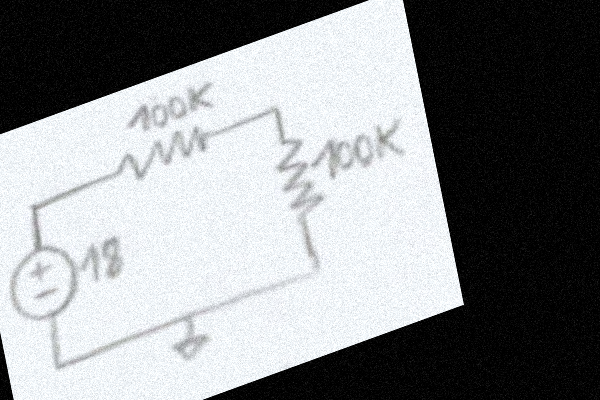 100K
100K
18